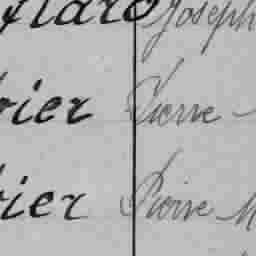 flaro Joseph
rier Pierre
rier Pierre M